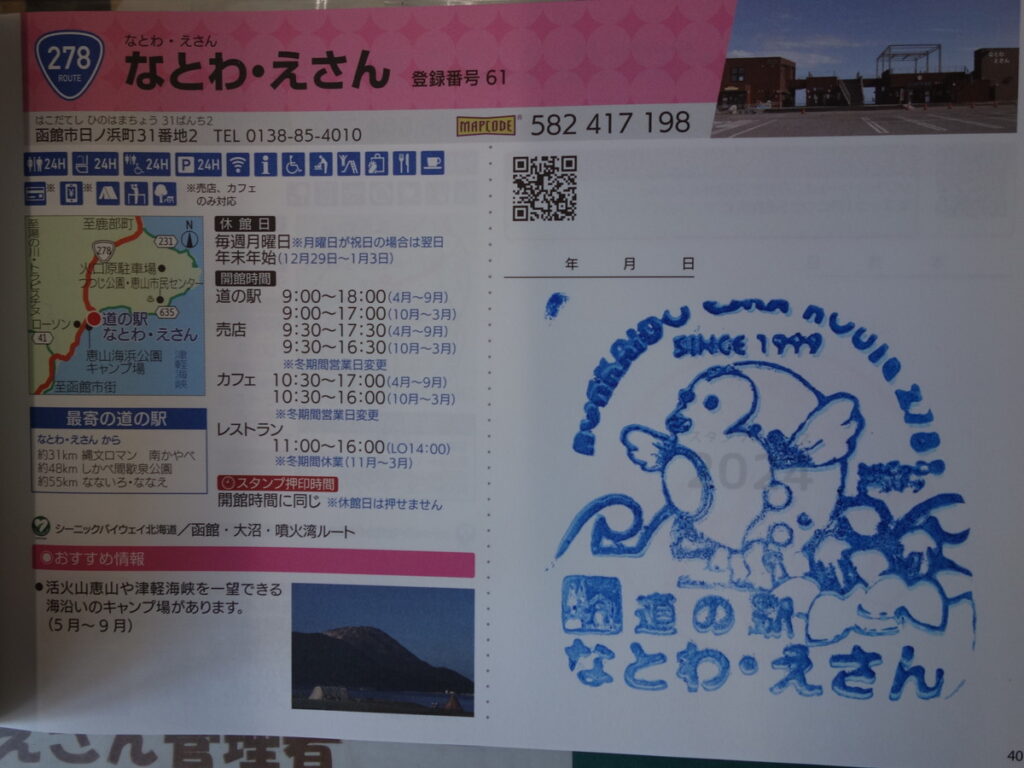 278
ROUTE
なとわ・えさん
なとわ・えさん 登録番号 61
なとわ
えさん
はこだてし ひのはまちょう 31ばんち2
函館市日ノ浜町31番地2 TEL 0138-85-4010
MAPCODE® 582 417 198
24H 24H 24H P 24H
※ ※ ※売店、カフェ
のみ対応
至鹿部町
N
278
231
火口原駐車場
つつじ公園・恵山市民センター
635
ローソン
道の駅
なとわ・えさん
41
恵山海浜公園
キャンプ場
津軽海峡
至函館市街
休館日
毎週月曜日※月曜日が祝日の場合は翌日
年末年始(12月29日〜1月3日)
開館時間
道の駅 9:00〜18:00(4月〜9月)
9:00〜17:00(10月〜3月)
売店 9:30〜17:30(4月〜9月)
9:30〜16:30(10月〜3月)
※冬期間営業日変更
カフェ 10:30〜17:00(4月〜9月)
10:30〜16:00(10月〜3月)
※冬期間営業日変更
レストラン
11:00〜16:00(LO14:00)
※冬期間休業(11月〜3月)
スタンプ押印時間
開館時間に同じ ※休館日は押せません
最寄の道の駅
なとわ・えさん から
約31km 縄文ロマン 南かやべ
約48km しかべ間歇泉公園
約55km なないろ・ななえ
シーニックバイウェイ北海道／函館・大沼・噴火湾ルート
おすすめ情報
●活火山恵山や津軽海峡を一望できる
海沿いのキャンプ場があります。
(5月〜9月)
年 月 日
SINCE 1999
2024
道の駅
なとわ・えさん
えさん管理者
40